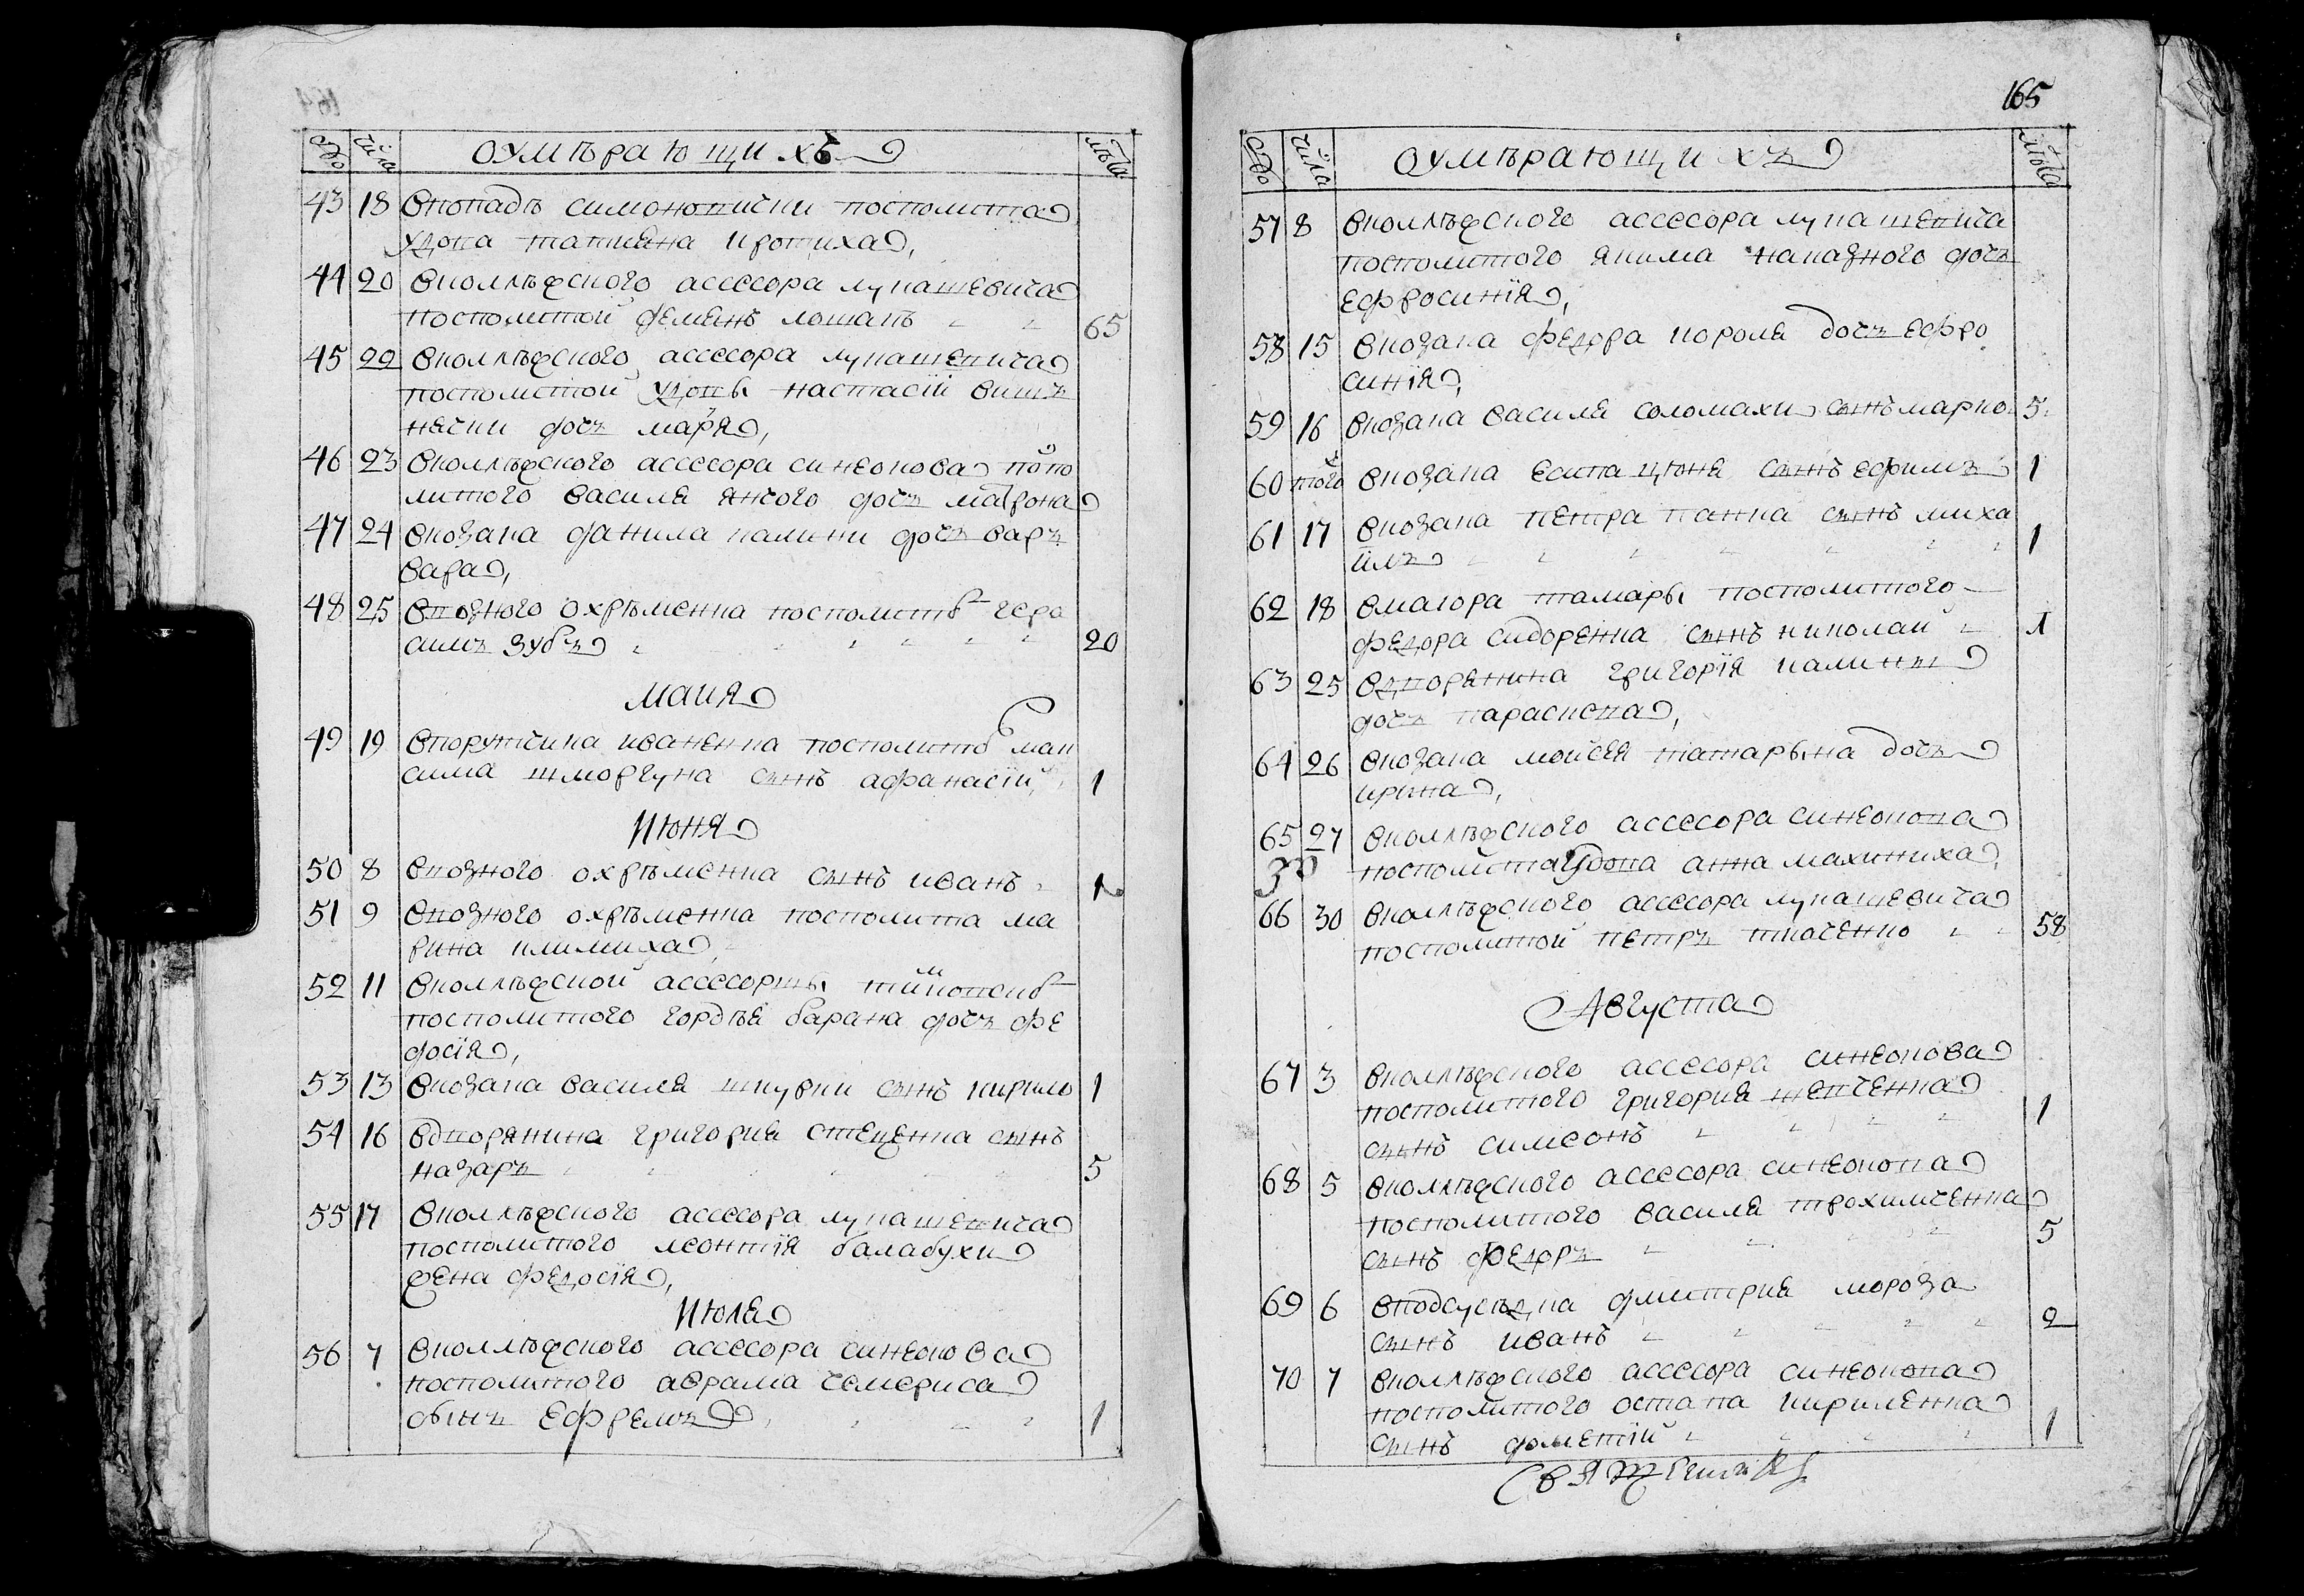 164
Что числа оумѣрающихъ лѣта
43 18 вкопадѣ симоновички посполита
удова татияна кротиха,
44 20 вколлѣжского асессора лукашевича
посполитой демянъ лошакъ 65
45 22 вколлѣжского ассесора лукашевича
посполитой удовы настасїи виш
нячки дочъ марїя,
46 23 вколлѣжского ассесора синеокова поспо
литого василя янчого дочъ матрона
47 24 вкозака данила калини дочъ вар
вара,
48 25 ввозного охрѣменка посполитъ гера
симъ зубъ 20
маия
49 19 впорутчика иваненка посполитъ мак
сима шморгуна сынъ афанасїй 1
июня
50 8 ввозного охрѣменка сынъ иванъ 1
51 9 ввозного охрѣменка посполита ма
рина климиха,
52 11 вколлѣжской ассесоршы
посполитого гордѣя барана дочъ фе
досїя,
53 13 вкозака василя шкурки сынъ кирило 1
54 16 вдворянина григория стеценка сынъ
назаръ 5
55 17 вколлѣжского асесора лукашевича
посполитого леонтїя балабухи
жена федосїя,
июля
56 7 вколлѣжского ассесора синеокова
посполитого аврама чемериса
сынъ ефремъ 1
165
Что числа оумѣрающихъ лѣта
57 8 вколлѣжского ассесора лукашевича
посполитого якима наказного дочъ
ефросинїя,
58 15 вкозака федора короля дочъ ефро
синїя,
59 16 вкозака василя соломахи сынъ марко 5
60 того вкозака есипа цюня сынъ ефимъ 1
61 17 вкозака петра панка сынъ миха
илъ 1
62 18 вмаіора тамары посполитого
федора сидоренка сынъ николай 1
63 25 вдворянина григорїя калины
дочъ параскева,
64 26 вкозака мойсея татарына дочъ
ирина,
65 27 вколлѣжского ассесора синеокова
посполита удова анна махиниха,
66 30 вколлѣжского ассесора лукашевича
посполитой петръ ткаченко 58
Августа
67 3 вколлѣжского ассесора синеокова
посполитого григория шевченка
сынъ симеонъ 1
68 5 вколлѣжского ассесора синеокова
посполитого василя трохимченка
сынъ федоръ 5
69 6 вподсусѣдка дмитрия мороза
сынъ иванъ 2
70 7 вколлѣжского ассесора синеокова
посполитого остапа кириленка
сынъ дометїй 1
Священникъ